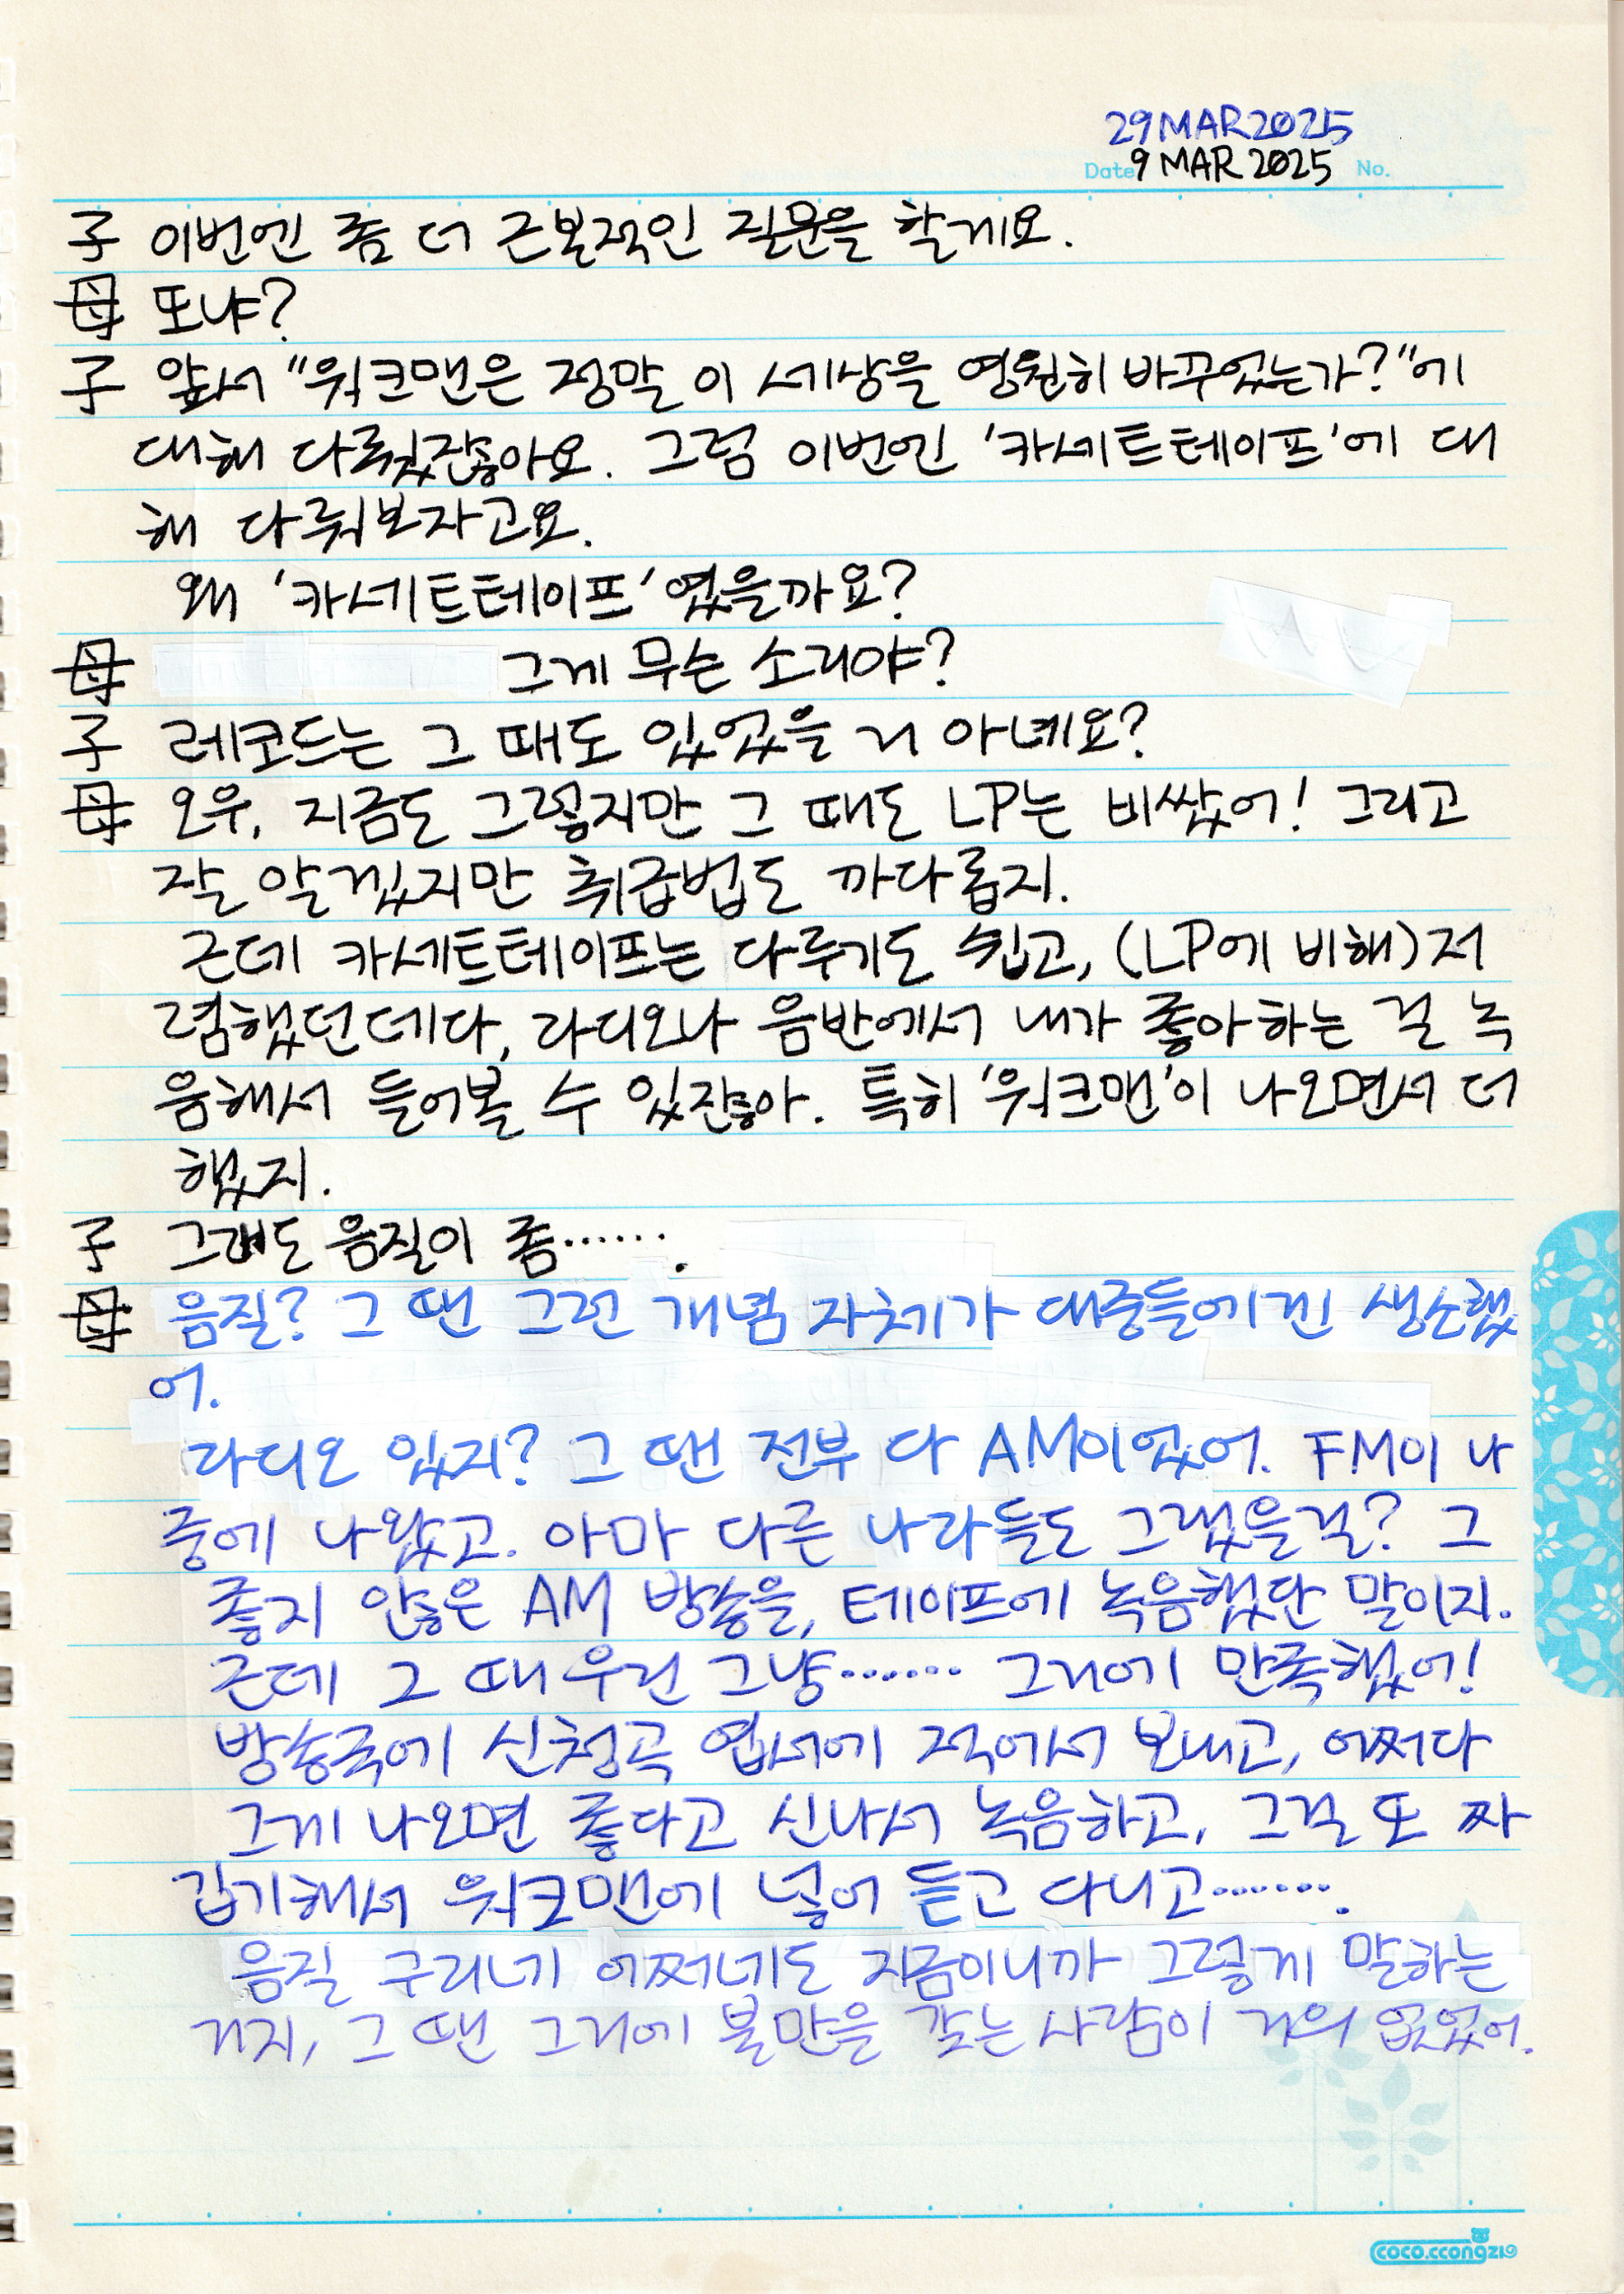 29MAR2025
Date 9 MAR 2025 No.
子 이번엔 좀 더 근본적인 질문을 할게요.
母 또냐?
子 앞서 "워크맨은 정말 이 세상을 영원히 바꾸었는가?"에
대해 다뤘잖아요. 그럼 이번엔 '카세트테이프'에 대
해 다뤄보자고요.
왜 '카세트테이프'였을까요?
母 그게 무슨 소리야?
子 레코드는 그 때도 있었을 거 아녜요?
母 오우, 지금도 그렇지만 그 때도 LP는 비쌌어! 그리고
잘 알겠지만 취급법도 까다롭지.
근데 카세트테이프는 다루기도 쉽고, (LP에 비해) 저
렴했던데다, 라디오나 음반에서 내가 좋아하는 걸 녹
음해서 들어볼 수 있잖아. 특히 '워크맨'이 나오면서 더
했지.
子 그래도 음질이 좀…….
母 음질? 그 땐 그런 개념 자체가 대중들에겐 생소했
어.
라디오 있지? 그 땐 전부 다 AM이었어. FM이 나
중에 나왔고. 아마 다른 나라들도 그랬을걸? 그
좋지 않은 AM 방송을, 테이프에 녹음했단 말이지.
근데 그 때 우린 그냥…… 그거에 만족했어!
방송국에 신청곡 엽서에 적어서 보내고, 어쩌다
그게 나오면 좋다고 신나서 녹음하고, 그걸 또 짜
깁기해서 워크맨에 넣어 듣고 다니고…….
음질 구리네 어쩌네도 지금이니까 그렇게 말하는
거지, 그 땐 그거에 불만을 갖는 사람이 거의 없었어.
coco.ccongzi